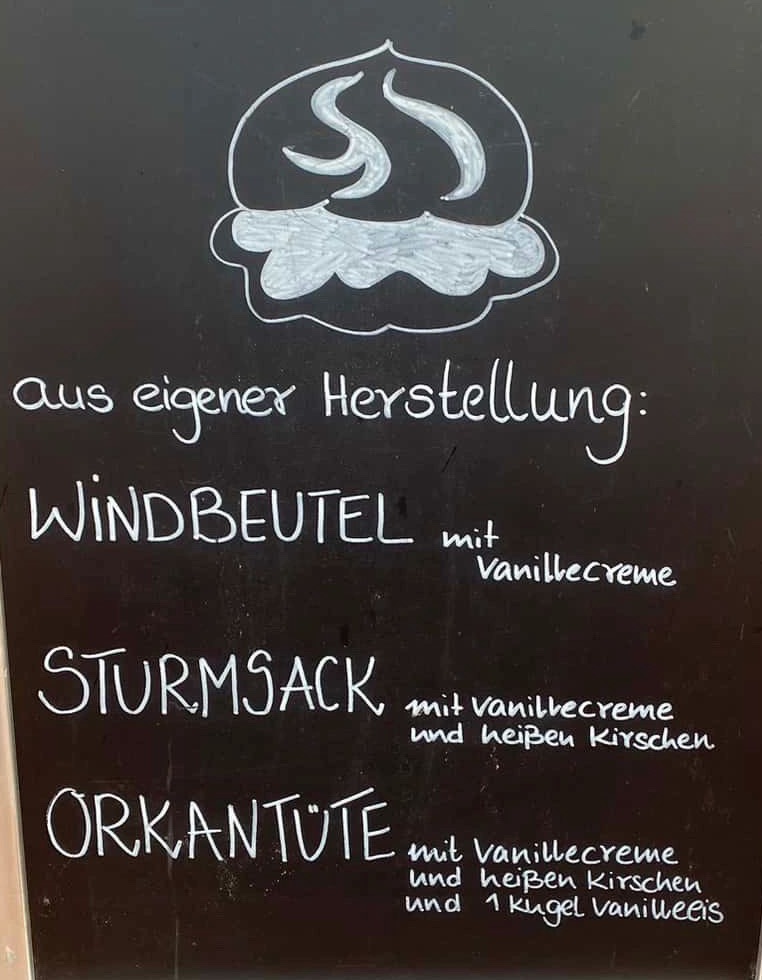 aus eigener Herstellung:
WINDBEUTEL mit
Vanillecreme
STURMSACK mit Vanillecreme
und heißen Kirschen
ORKANTÜTE mit Vanillecreme
und heißen Kirschen
und 1 Kugel Vanilleeis